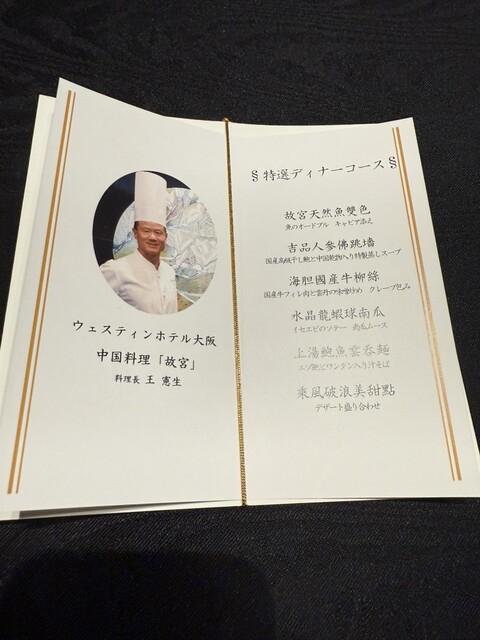 ウェスティンホテル大阪
中国料理「故宮」
料理長 王 憲生
§ 特選ディナーコース §
故宮天然魚雙色
魚のオードブル キャビア添え
吉品人參佛跳墻
国産高級干し鮑と中国乾物入り特製蒸しスープ
海胆國産牛柳絲
国産牛フィレ肉と雲丹の味噌炒め クレープ包み
水晶龍蝦球南瓜
イセエビのソテー 南瓜ムース
上湯鮑魚雲呑麺
エゾ鮑とワンタン入り汁そば
乘風破浪美甜點
デザート盛り合わせ